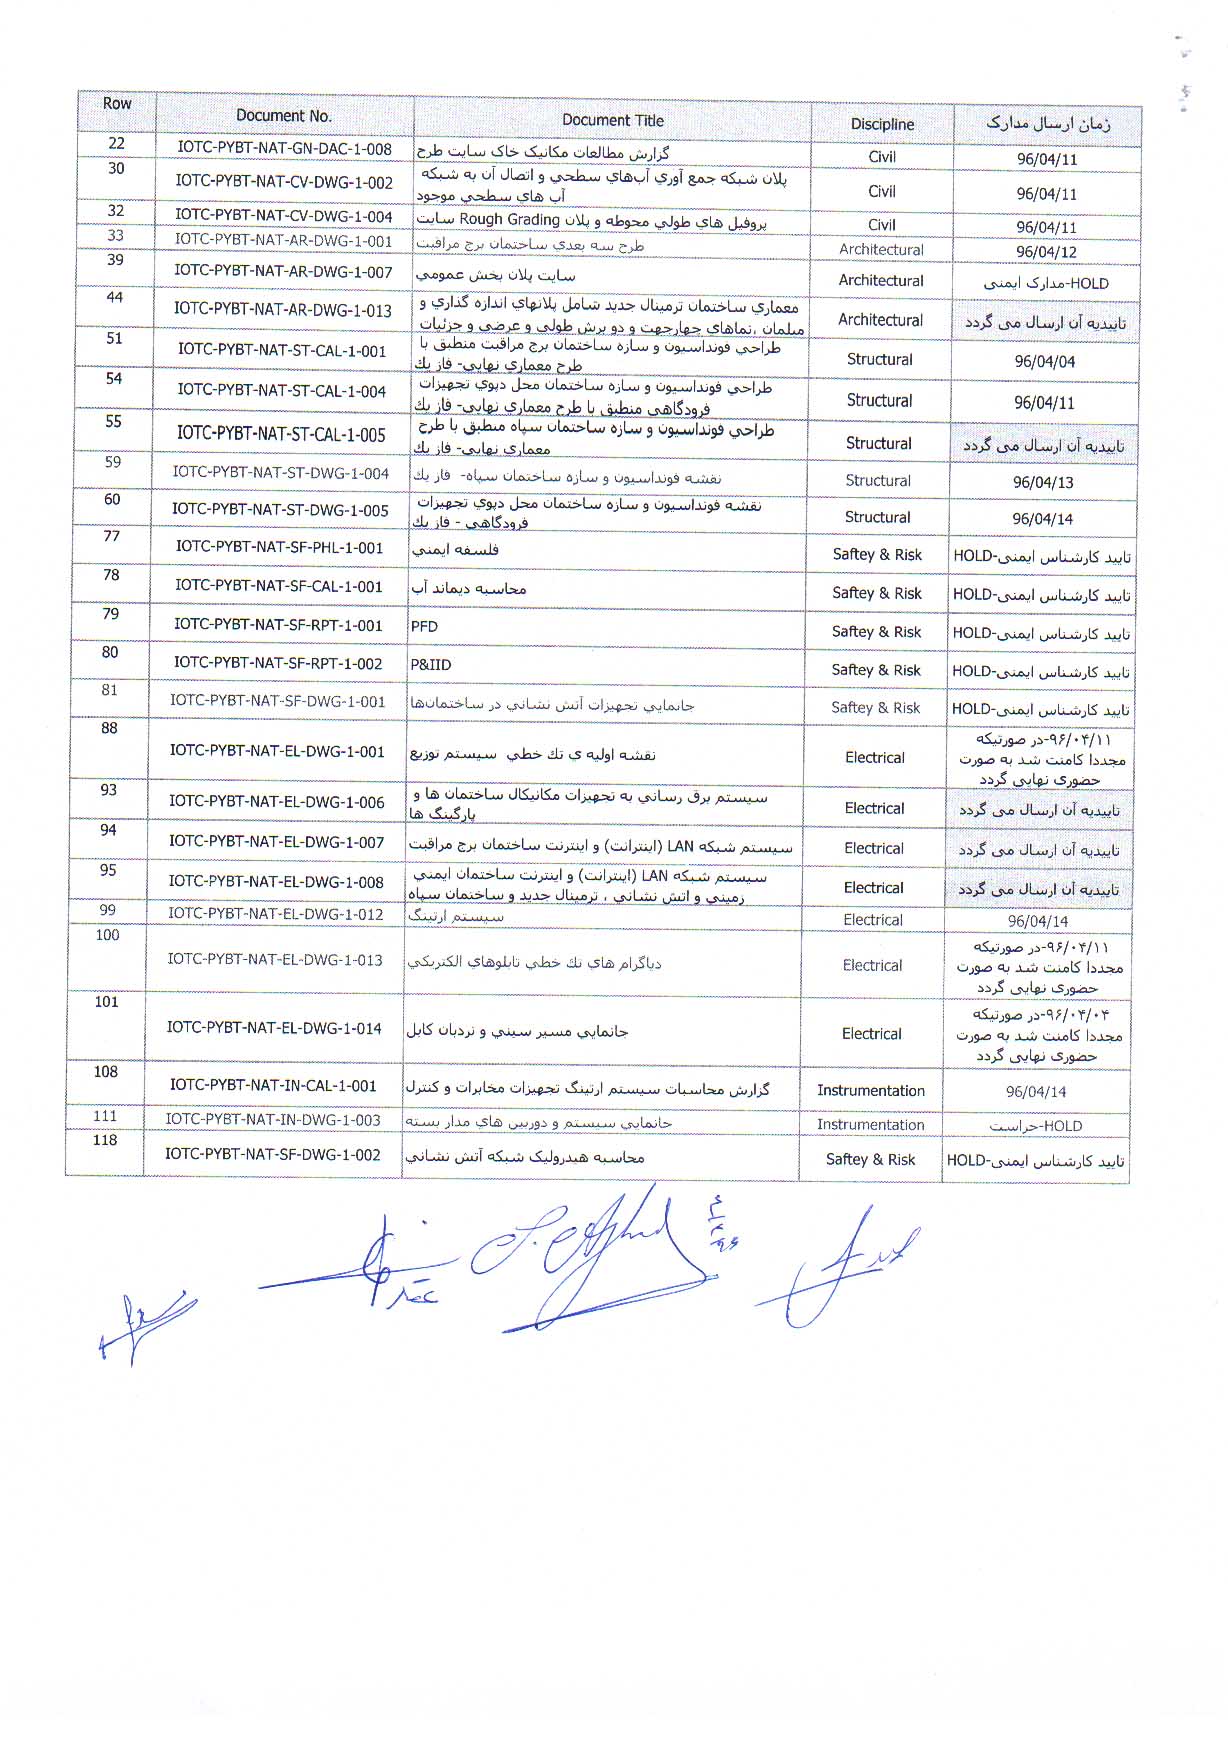 Row Document No. Document Title Discipline زمان ارسال مدارک
22 IOTC-PYBT-NAT-GN-DAC-1-008 گزارش مطالعات مكانيک خاک سايت طرح Civil 96/04/11
30 IOTC-PYBT-NAT-CV-DWG-1-002 پلان شبکه جمع آوري آب‌هاي سطحي و اتصال آن به شبکه
آب هاي سطحي موجود Civil 96/04/11
32 IOTC-PYBT-NAT-CV-DWG-1-004 پروفيل هاي طولي محوطه و پلان Rough Grading سايت Civil 96/04/11
33 IOTC-PYBT-NAT-AR-DWG-1-001 طرح سه بعدي ساختمان برج مراقبت Architectural 96/04/12
39 IOTC-PYBT-NAT-AR-DWG-1-007 سايت پلان بخش عمومي Architectural HOLD-مدارک ایمنی
44 IOTC-PYBT-NAT-AR-DWG-1-013 معماري ساختمان ترمينال جديد شامل پلانهاي اندازه گذاري و
مبلمان ،نماهاي چهارجهت و دو برش طولي و عرضي و جزئيات Architectural تاییدیه آن ارسال می گردد
51 IOTC-PYBT-NAT-ST-CAL-1-001 طراحي فونداسيون و سازه ساختمان برج مراقبت منطبق با
طرح معماري نهايي- فاز يك Structural 96/04/04
54 IOTC-PYBT-NAT-ST-CAL-1-004 طراحي فونداسيون و سازه ساختمان محل دپوي تجهيزات
فرودگاهي منطبق با طرح معماري نهايي- فاز يك Structural 96/04/11
55 IOTC-PYBT-NAT-ST-CAL-1-005 طراحي فونداسيون و سازه ساختمان سپاه منطبق با طرح
معماري نهايي- فاز يك Structural تاییدیه آن ارسال می گردد
59 IOTC-PYBT-NAT-ST-DWG-1-004 نقشه فونداسيون و سازه ساختمان سپاه- فاز يك Structural 96/04/13
60 IOTC-PYBT-NAT-ST-DWG-1-005 نقشه فونداسيون و سازه ساختمان محل دپوي تجهيزات
فرودگاهي - فاز يك Structural 96/04/14
77 IOTC-PYBT-NAT-SF-PHL-1-001 فلسفه ايمني Saftey & Risk HOLD-تایید کارشناس ایمنی
78 IOTC-PYBT-NAT-SF-CAL-1-001 محاسبه ديماند آب Saftey & Risk HOLD-تایید کارشناس ایمنی
79 IOTC-PYBT-NAT-SF-RPT-1-001 PFD Saftey & Risk HOLD-تایید کارشناس ایمنی
80 IOTC-PYBT-NAT-SF-RPT-1-002 P&IID Saftey & Risk HOLD-تایید کارشناس ایمنی
81 IOTC-PYBT-NAT-SF-DWG-1-001 جانمايي تجهيزات آتش نشاني در ساختمان‌ها Saftey & Risk HOLD-تایید کارشناس ایمنی
88 IOTC-PYBT-NAT-EL-DWG-1-001 نقشه اوليه ي تك خطي سيستم توزيع Electrical ۹۶/۰۴/۱۱-در صورتیکه
مجددا کامنت شد به صورت
حضوری نهایی گردد
93 IOTC-PYBT-NAT-EL-DWG-1-006 سيستم برق رساني به تجهيزات مكانيكال ساختمان ها و
پارگينگ ها Electrical تاییدیه آن ارسال می گردد
94 IOTC-PYBT-NAT-EL-DWG-1-007 سيستم شبكه LAN (اينترانت) و اينترنت ساختمان برج مراقبت Electrical تاییدیه آن ارسال می گردد
95 IOTC-PYBT-NAT-EL-DWG-1-008 سيستم شبكه LAN (اينترانت) و اينترنت ساختمان ايمني
زميني و اتش نشاني ، ترمينال جديد و ساختمان سپاه Electrical تاییدیه آن ارسال می گردد
99 IOTC-PYBT-NAT-EL-DWG-1-012 سيستم ارتينگ Electrical 96/04/14
100 IOTC-PYBT-NAT-EL-DWG-1-013 دياگرام هاي تك خطي تابلوهاي الكتريكي Electrical ۹۶/۰۴/۱۱-در صورتیکه
مجددا کامنت شد به صورت
حضوری نهایی گردد
101 IOTC-PYBT-NAT-EL-DWG-1-014 جانمايي مسير سيني و نردبان كابل Electrical ۹۶/۰۴/۰۴-در صورتیکه
مجددا کامنت شد به صورت
حضوری نهایی گردد
108 IOTC-PYBT-NAT-IN-CAL-1-001 گزارش محاسبات سيستم ارتينگ تجهيزات مخابرات و كنترل Instrumentation 96/04/14
111 IOTC-PYBT-NAT-IN-DWG-1-003 جانمايي سيستم و دوربين هاي مدار بسته Instrumentation HOLD-حراست
118 IOTC-PYBT-NAT-SF-DWG-1-002 محاسبه هيدروليک شبکه آتش نشاني Saftey & Risk HOLD-تایید کارشناس ایمنی